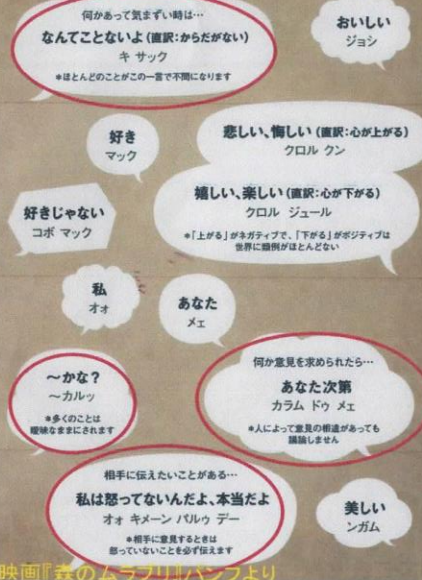 何かあって気まずい時は…
なんてことないよ(直訳:からだがない)
キ サック
*ほとんどのことがこの一言で不問になります
おいしい
ジョシ
好き
マック
悲しい、悔しい(直訳:心が上がる)
クロル クン
嬉しい、楽しい(直訳:心が下がる)
クロル ジュール
*「上がる」がネガティブで、「下がる」がポジティブは
世界に類例がほとんどない
好きじゃない
コボ マック
私
オォ
あなた
メェ
〜かな?
〜カルッ
*多くのことは
曖昧なままにされます
何か意見を求められたら…
あなた次第
カラム ドゥ メェ
*人によって意見の相違があっても
議論しません
相手に伝えたいことがある…
私は怒ってないんだよ、本当だよ
オォ キメーン バルゥ デー
*相手に意見するときは
怒っていないことを必ず伝えます
美しい
ンガム
映画『森のムラブリ』パンフより